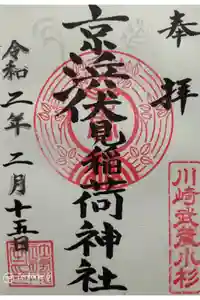 奉拝
川崎武蔵小杉
京浜伏見稲荷神社
令和二年二月十五日